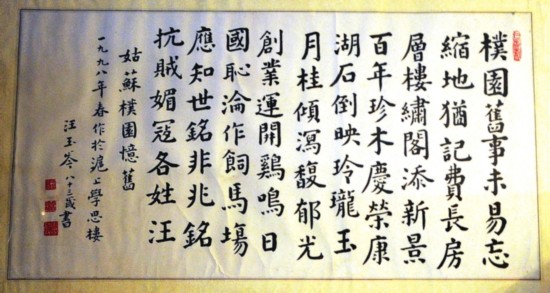 樸園舊事未易忘
縮地猶記費長房
層樓繡閣添新景
百年珍木慶榮康
湖石倒映玲瓏玉
月桂傾瀉馥郁光
創業運開鷄鳴日
國恥淪作飼馬場
應知世銘非兆銘
抗賊媚寇各姓汪
姑蘇樸園憶舊
一九九八年春作於滬上學思樓
汪玉岑八十三歲書